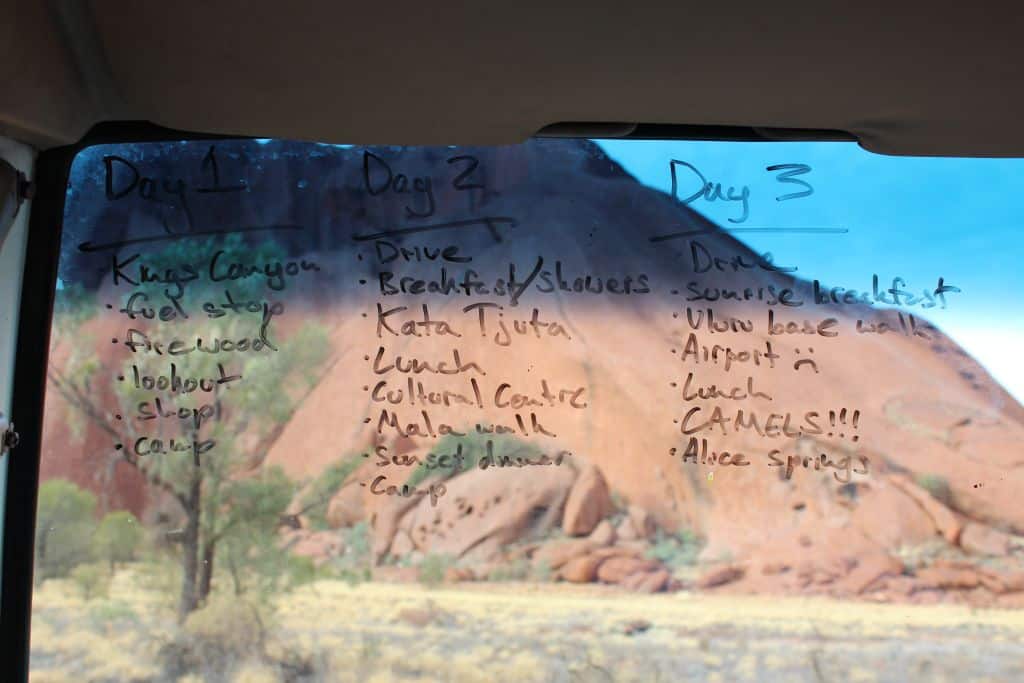 Day 1
Kings Canyon
· fuel stop
· firewood
· lookout
· shop
· camp
Day 2
· Drive
· Breakfast/showers
· Kata Tjuta
· Lunch
· Cultural Centre
· Mala walk
· Sunset dinner
· Camp
Day 3
· Drive
· sunrise breakfast
· Uluru base walk
· Airport :(
· Lunch
· CAMELS!!!
· Alice springs